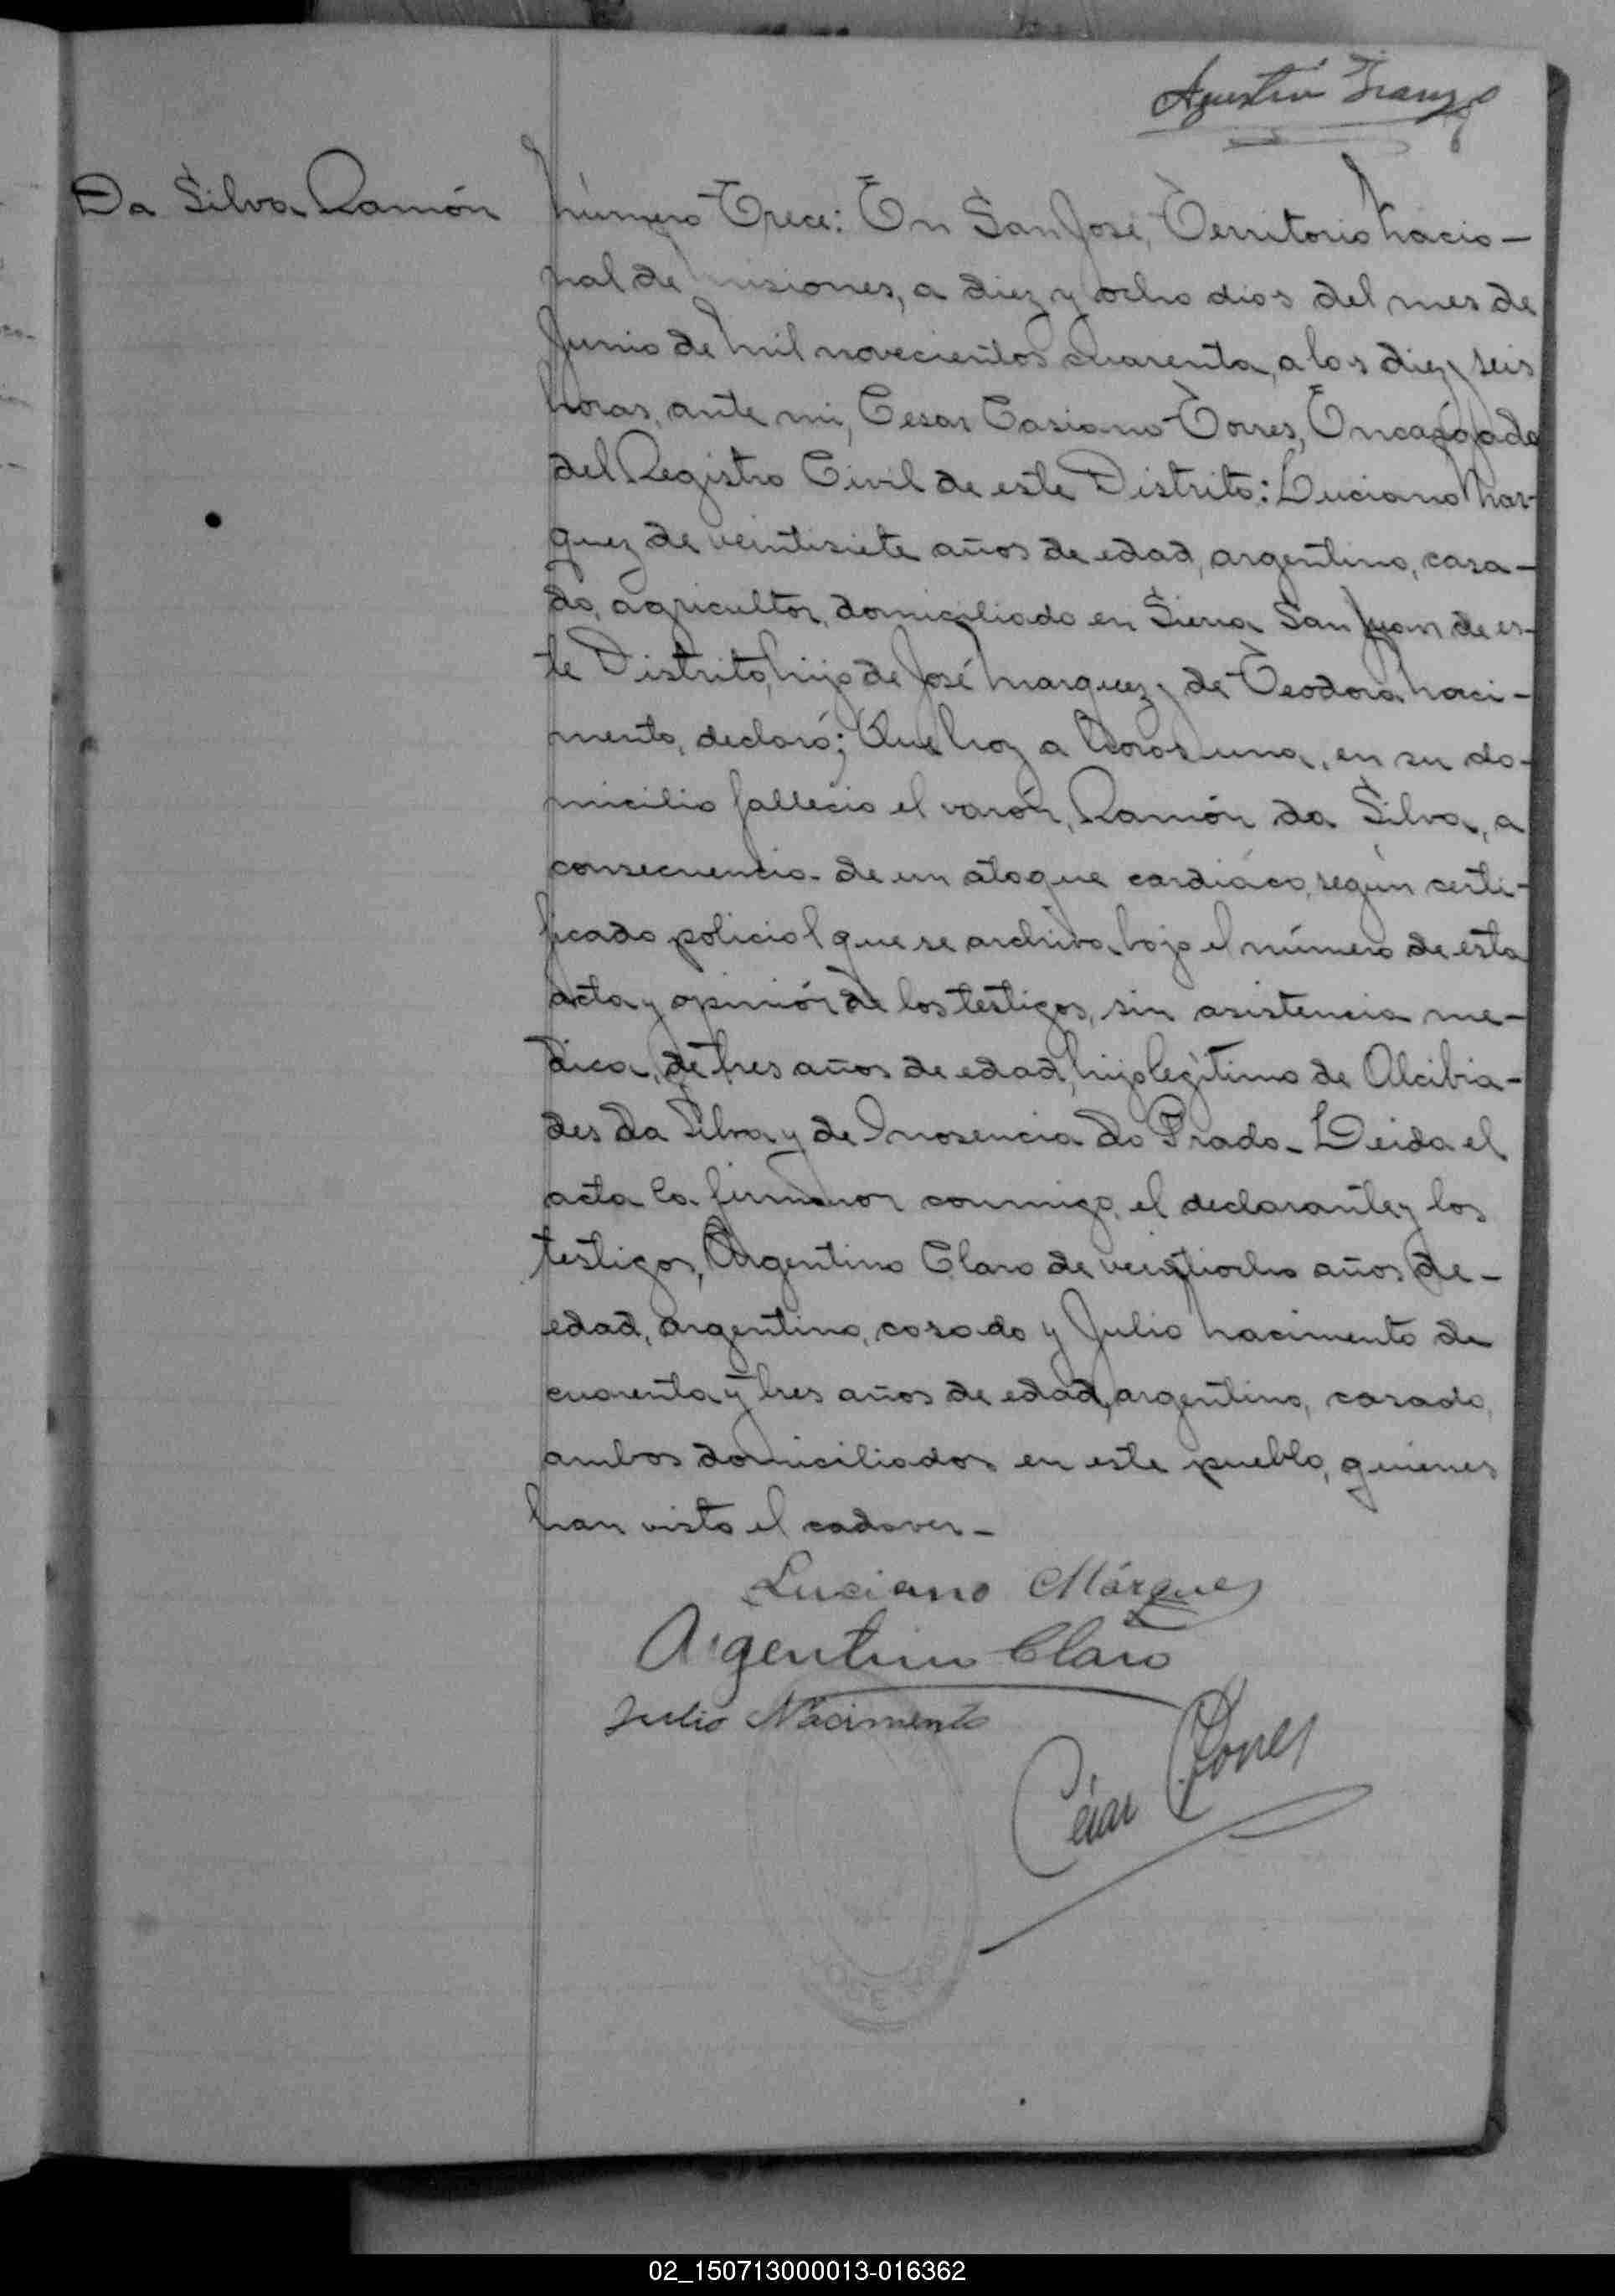 Agustín
Da Silva Ramón
Número Trece: En San José, Territorio Nacio-
nal de Misiones, a diez y ocho dias del mes de
Junio de mil novecientos cuarenta, a las diez y seis
horas, ante mi, Cesar Casiano Torres, Encargado
del Registro Civil de este Distrito: Luciano Mar-
quez de veintisiete años de edad, argentino, casa-
do, agricultor, domiciliado en Sierra San Juan de es-
te Distrito, hijo de José Marquez y de Teodora Naci-
mento, declaró; Que hoy a horas una, en su do-
micilio fallecio el varón, Ramón da Silva, a
consecuencia de un ataque cardiáco, según certi-
ficado policial que se archiva bajo el número de esta
acta y opinión de los testigos, sin asistencia me-
dica, de tres años de edad, hijo legítimo de Alcibia-
des da Silva y de Inosencia do Prado_ Leida el
acta la firmaron conmigo, el declarante y los
testigos, Argentino Claro de veintiocho años de-
edad, argentino, casado y Julio Nacimento de
cuarenta y tres años de edad, argentino, casado,
ambos domiciliados en este pueblo, quienes
han visto el cadaver_
Luciano Márquez
Argentino Claro
Julio Nacimento
César Torres
02_150713000013-016362